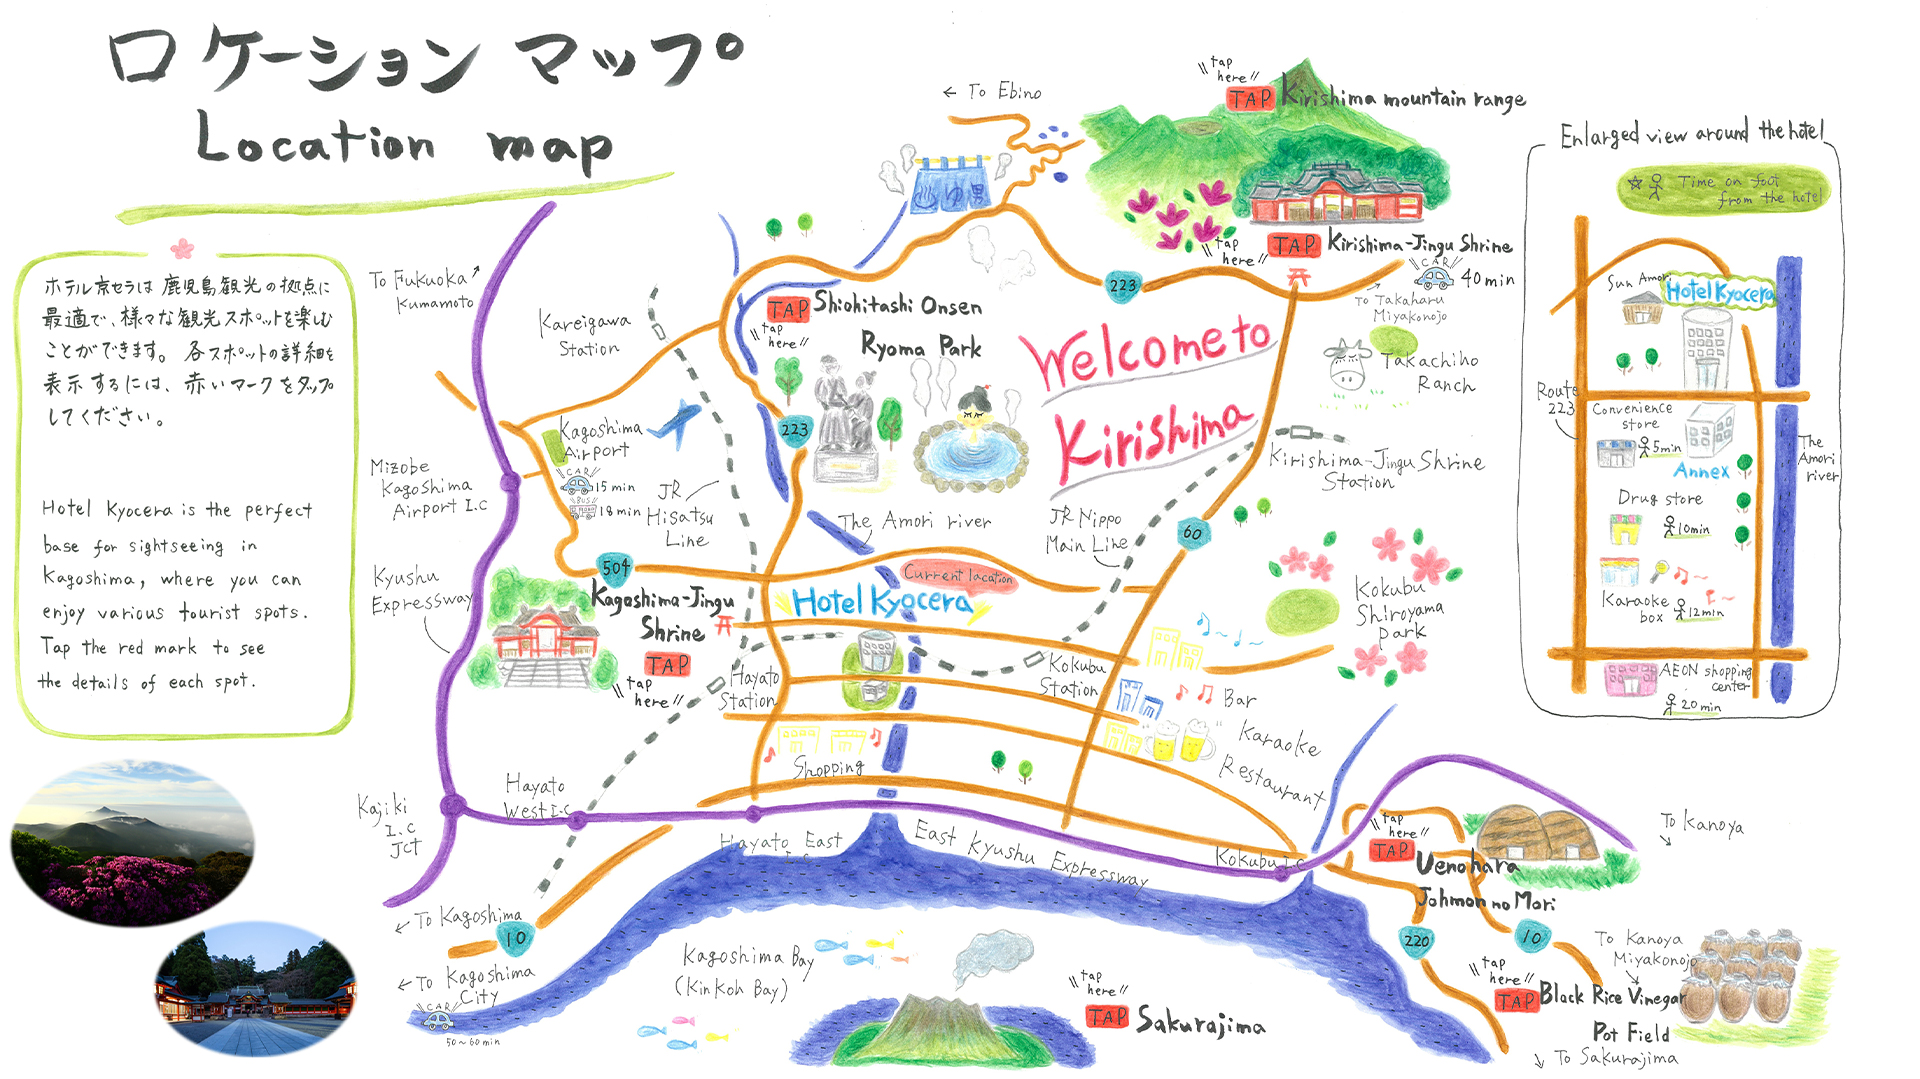 ロケーションマップ
Location map
ホテル京セラは鹿児島観光の拠点に
最適で、様々な観光スポットを楽しむ
ことができます。各スポットの詳細を
表示するには、赤いマークをタップ
してください。
Hotel Kyocera is the perfect
base for sightseeing in
Kagoshima, where you can
enjoy various tourist spots.
Tap the red mark to see
the details of each spot.
← To Ebino
ゆ 男
"tap
here"
TAP
Kirishima mountain range
"tap
here"
TAP
Kirishima-Jingu Shrine
CAR
40min
To Takaharu
Miyakonojo
223
To Fukuoka
Kumamoto
Kareigawa
Station
TAP
Shiohitashi Onsen
"tap
here"
Ryoma Park
Welcome to
Kirishima
Takachiho
Ranch
Kagoshima
Airport
CAR
15 min
BUS
18 min
223
JR
Hisatsu
Line
Mizobe
Kagoshima
Airport I.C
The Amori river
JR Nippo
Main Line
Kirishima-Jingu Shrine
Station
60
504
Kyushu
Expressway
Kagoshima-Jingu
Shrine
TAP
"tap
here"
Current location
Hotel Kyocera
Hayato
Station
Kokubu
Station
Kokubu
Shiroyama
park
Bar
Karaoke
Restaurant
Shopping
Hayato
West I.C
Kajiki
I.C
Jct
Hayato East
I.C
East Kyushu Expressway
Kokubu I.C
"tap
here"
TAP
Uenohara
Johmon no Mori
To Kanoya
← To Kagoshima
10
← To Kagoshima
City
CAR
50~60min
Kagoshima Bay
(Kinkoh Bay)
"tap
here"
TAP
Sakurajima
220
10
To Kanoya
Miyakonojo
"tap
here"
TAP
Black Rice Vinegar
Pot Field
To Sakurajima
Enlarged view around the hotel
Time on foot
from the hotel
Sun Amori
Hotel Kyocera
Route
223
Convenience
store
5min
Annex
The
Amori
river
Drug store
10min
Karaoke
box
12min
AEON shopping
center
20min